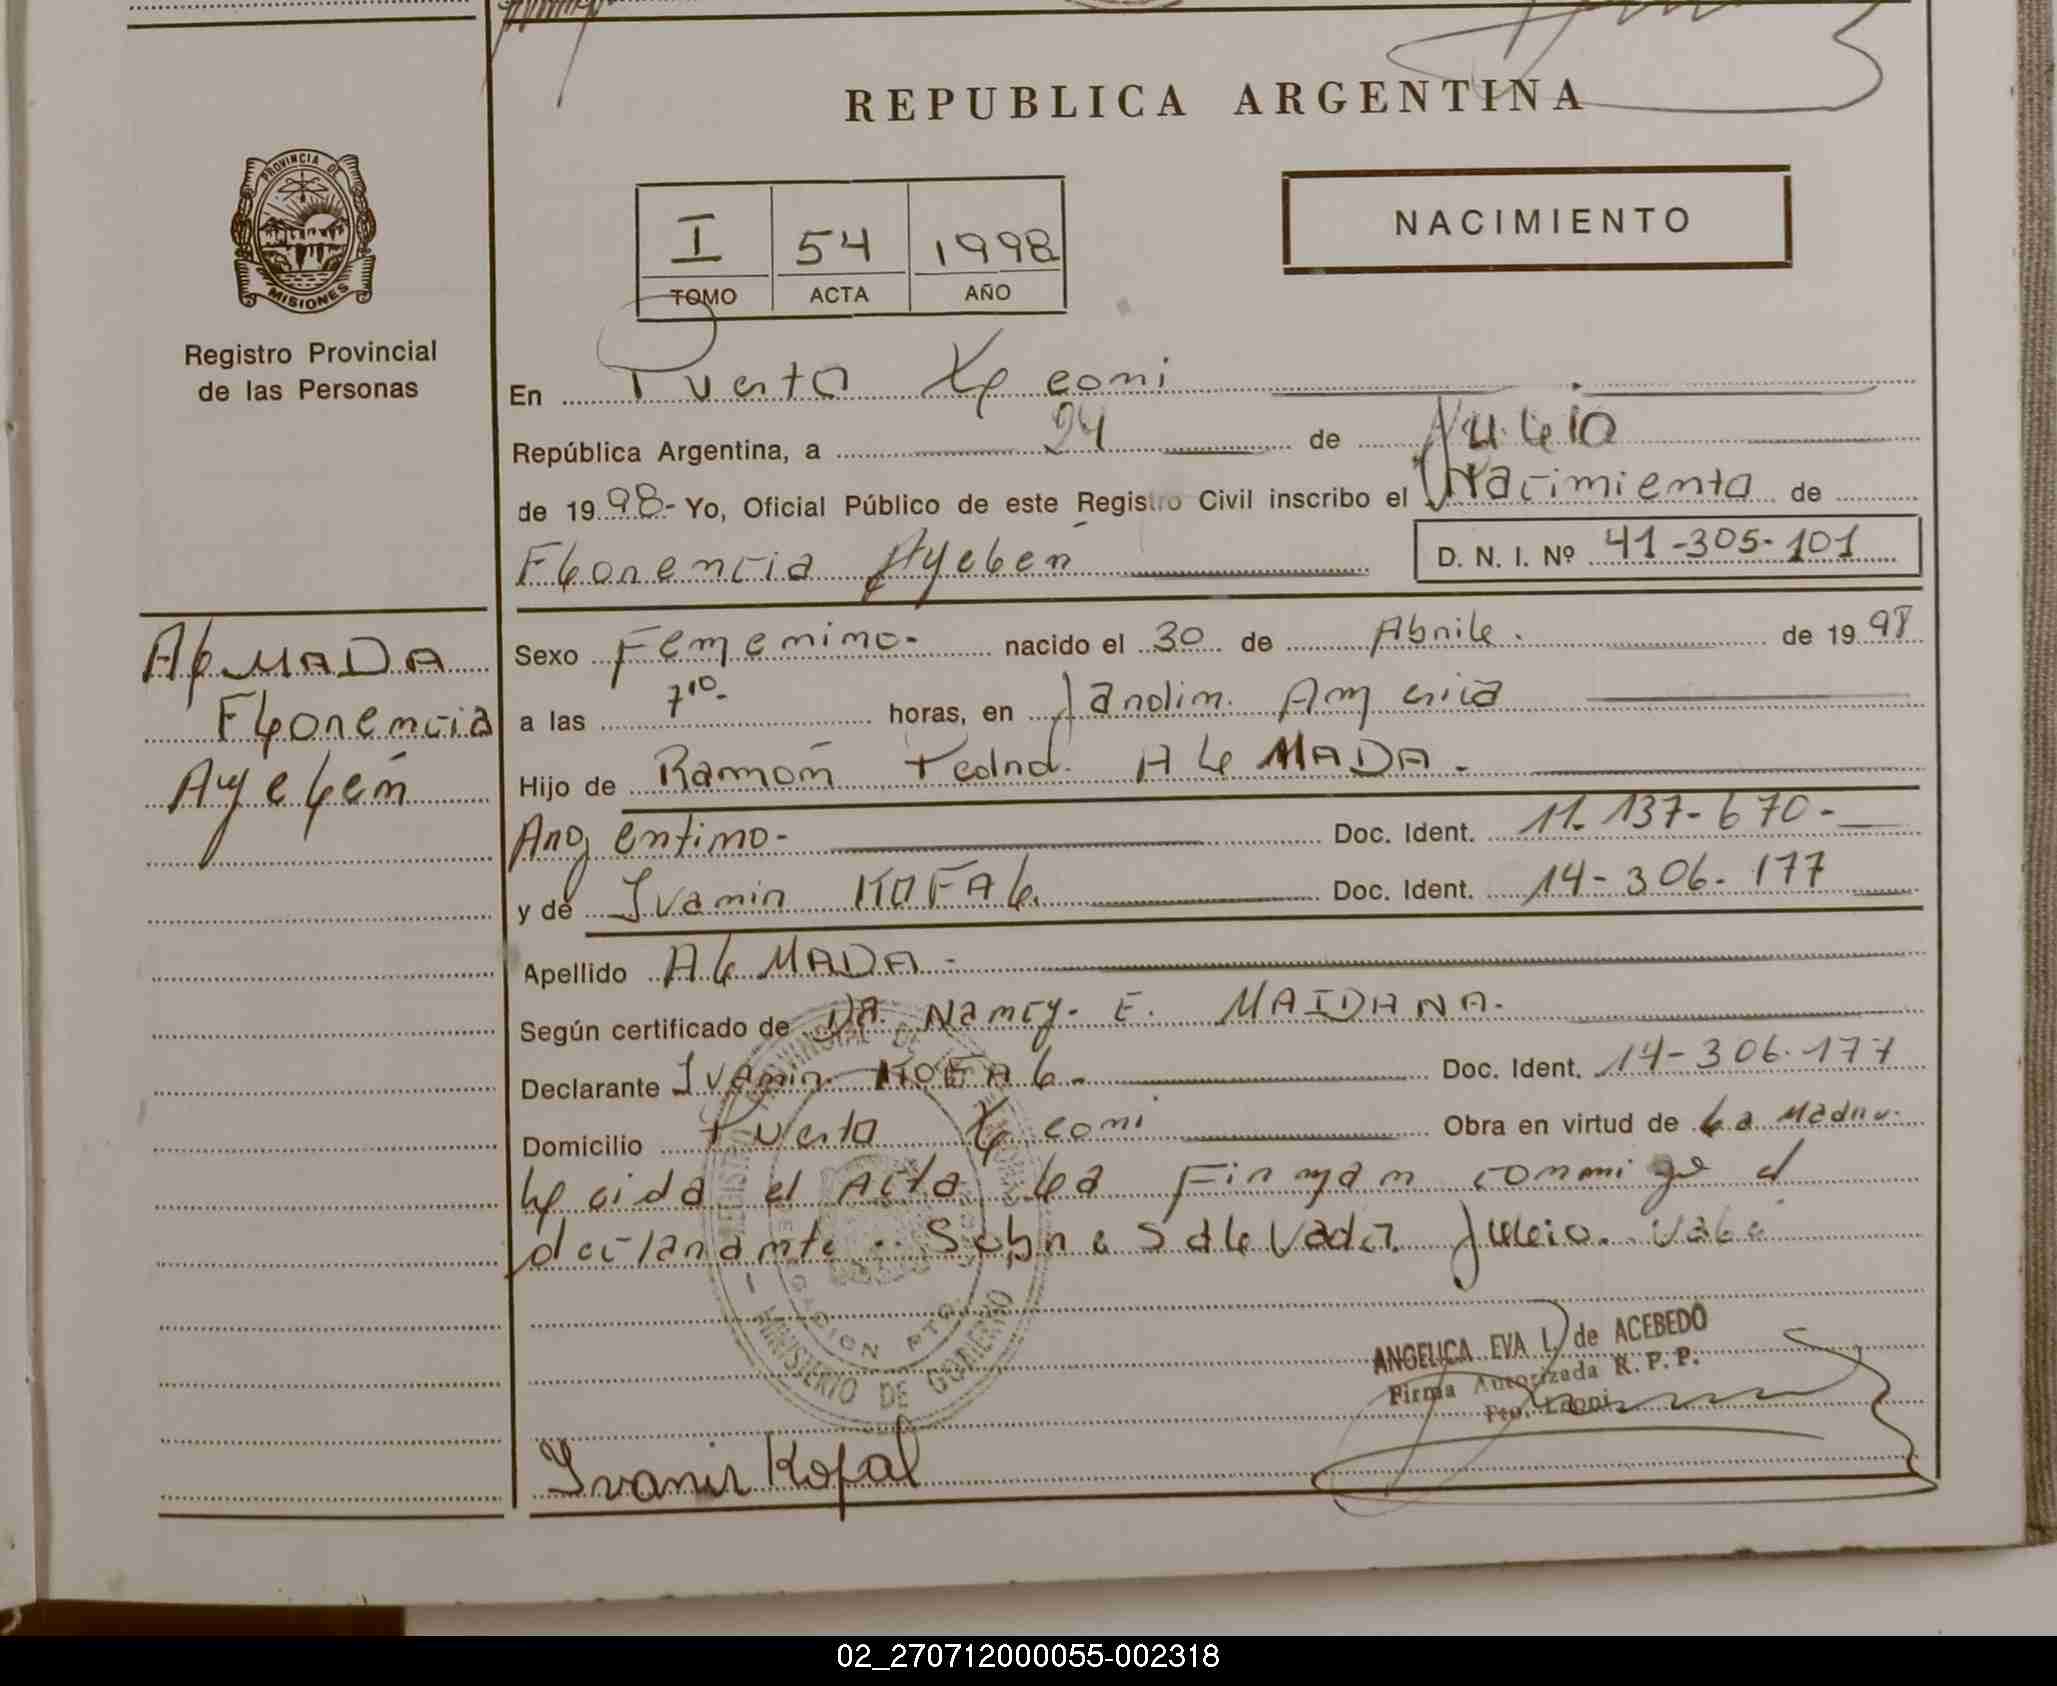 REPUBLICA ARGENTINA
PROVINCIA DE
MISIONES
Registro Provincial
de las Personas
I 54 1998
TOMO ACTA AÑO
NACIMIENTO
En Puerto Leoni
República Argentina, a 24 de Julio
de 1998- Yo, Oficial Público de este Registro Civil inscribo el Nacimiento de
Florencia Ayelén D. N. I. Nº 41-305-101
ALMADA
Florencia
Ayelén
Sexo Femenino- nacido el 30 de Abril. de 1998
a las 7¹⁰- horas, en Jardin America
Hijo de Ramón Pedro ALMADA.-
Argentino- Doc. Ident. 11.137-670-
y de Ivanir KOFAL. Doc. Ident. 14-306-177
Apellido ALMADA-
Según certificado de Dra. Nancy. E. MAIDANA.
Declarante Ivanir KOFAL- Doc. Ident. 14-306.177
Domicilio Puerto Leoni Obra en virtud de La Madre.
Leida el Acta La Firman conmigo el
declarante. Sobre Salvada. Julio. Vale
MINISTERIO DE GOBIERNO
ANGELICA EVA L. de ACEBEDO
Firma Autorizada R. P. P.
Pto. Leoni
Ivanir Kofal
02_270712000055-002318